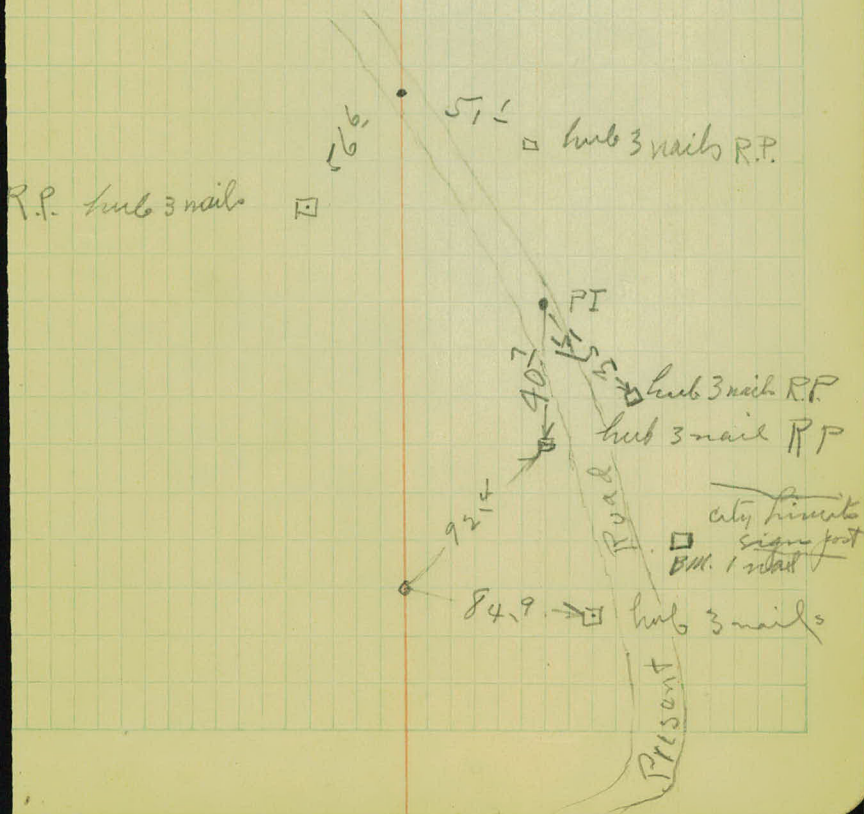 56.6
51.1
hub 3 nails R.P.
R.P. hub 3 nails
PI
40.7
hub 3 nails R.P.
hub 3 nail RP
92.4
Road
city limits
sign post
B.M. 1 nail
84.9
hub 3 nails
Present